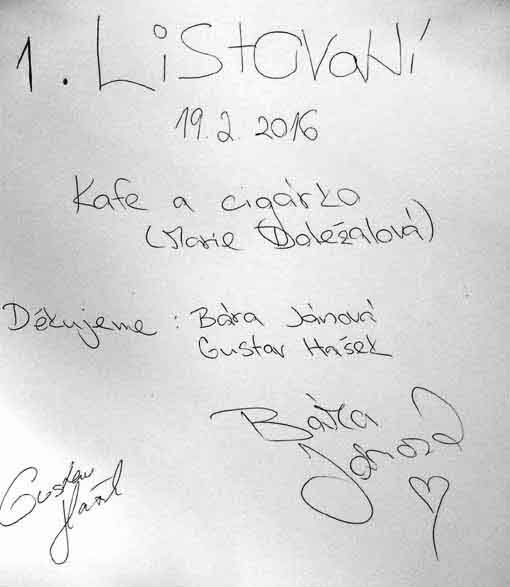 1. Listování
19. 2. 2016
Kafe a cigárko
(Marie Doležalová)
Děkujeme : Bára Jánová
Gustav Hašek
Bára
Jánová
Gustav
Hašek